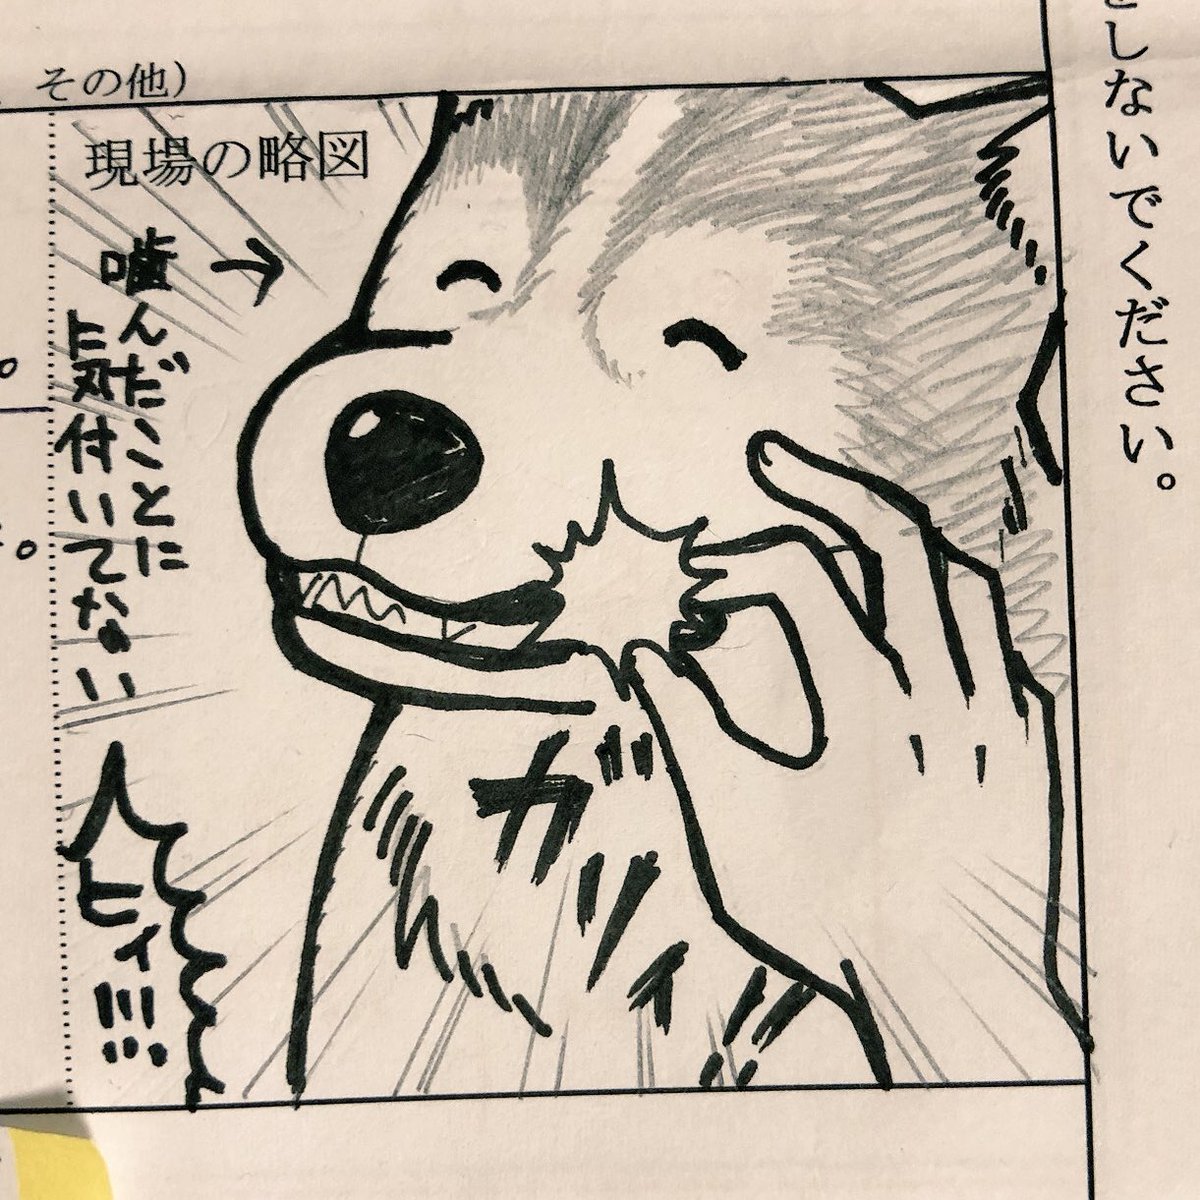 その他)
をしないでください。
現場の略図
噛んだことに
気付いてない
→
ヒィ!!!
ガブゥッ!!